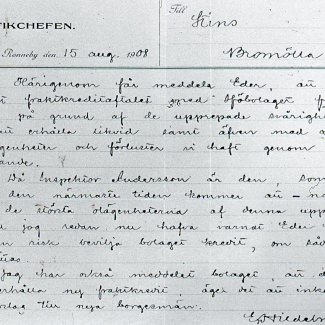 TIKCHEFEN.
Till
Stins
Ronneby den 15 aug. 1908
Bromölla
Härigenom får meddela Eder, att
fraktkreditaftalet med Sjöbolaget
på grund af de upprepade svårigh
att erhålla likvid samt äfven med
ägenheter och förluster vi haft genom
ande.
Då Inspektor Andersson är den, som
den närmaste tiden kommer att
de största olägenheterna af denna upp
jag redan nu hafva varnat Eder
risk bevilja bolaget kredit, om såd
Jag har också meddelat bolaget, att d
erhålla ny fraktkredit äger det att inko
slag till nya borgesmän.